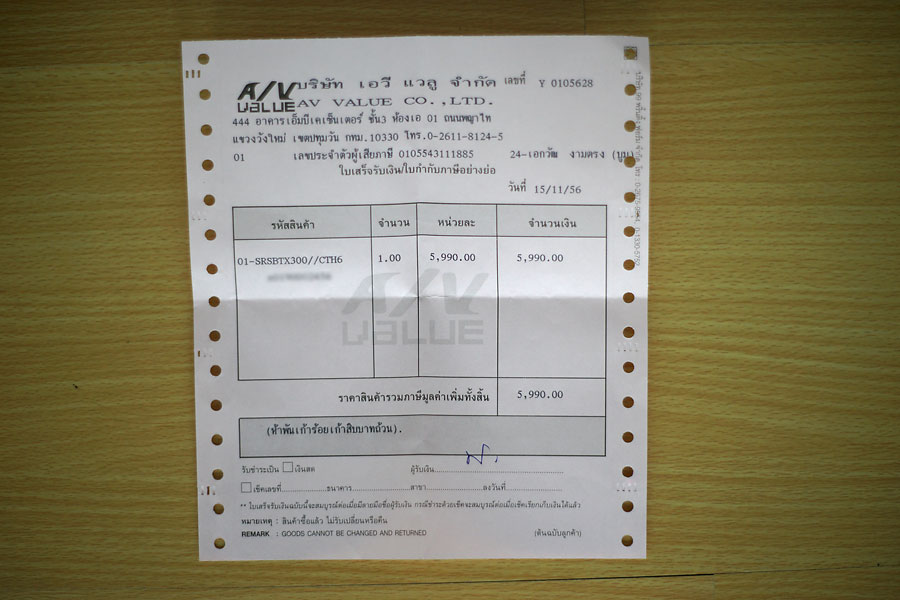 A/V VALUE บริษัท เอวี แวลู จำกัด เลขที่ Y 0105628
AV VALUE CO.,LTD.
444 อาคารเอ็มบีเคเซ็นเตอร์ ชั้น3 ห้องเอ 01 ถนนพญาไท
แขวงวังใหม่ เขตปทุมวัน กทม.10330 โทร.0-2611-8124-5
01 เลขประจำตัวผู้เสียภาษี 0105543111885 24-เอกวัฒ งามตรง (บูม)
ใบเสร็จรับเงิน/ใบกำกับภาษีอย่างย่อ
วันที่ 15/11/56
รหัสสินค้า จำนวน หน่วยละ จำนวนเงิน
01-SRSBTX300//CTH6 1.00 5,990.00 5,990.00
A/V VALUE
ราคาสินค้ารวมภาษีมูลค่าเพิ่มทั้งสิ้น 5,990.00
(ห้าพันเก้าร้อยเก้าสิบบาทถ้วน).
รับชำระเป็น เงินสด ผู้รับเงิน
เช็คเลขที่ ธนาคาร สาขา ลงวันที่
** ใบเสร็จรับเงินฉบับนี้จะสมบูรณ์ต่อเมื่อมีลายมือชื่อผู้รับเงิน กรณีชำระด้วยเช็คจะสมบูรณ์ต่อเมื่อเช็คเรียกเก็บเงินได้แล้ว
หมายเหตุ : สินค้าซื้อแล้ว ไม่รับเปลี่ยนหรือคืน
REMARK : GOODS CANNOT BE CHANGED AND RETURNED (ต้นฉบับลูกค้า)